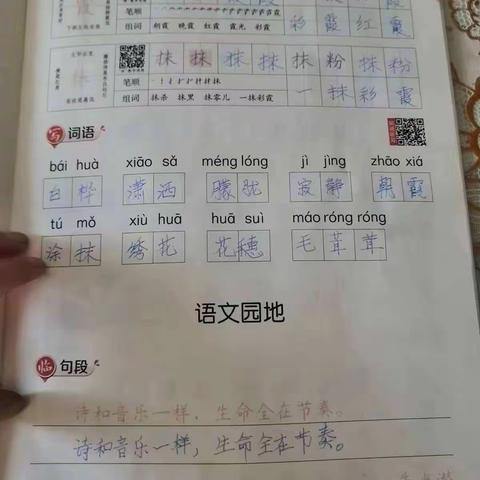 霞
笔顺
组词 朝霞 晚霞 红霞 霞光 彩霞
彩 霞 红 霞
抹 抹 抹 抹 抹 粉 抹 粉
笔顺
组词 抹杀 抹黑 抹零儿 一抹彩霞
一 抹 彩 霞
写 词语
bái huà xiāo sǎ méng lóng jì jìng zhāo xiá
白桦 潇洒 朦胧 寂静 朝霞
tú mǒ xiù huā huā suì máo róng róng
涂抹 绣花 花穗 毛茸茸
语文园地
临 句段
诗和音乐一样，生命全在节奏。
诗和音乐一样，生命全在节奏。